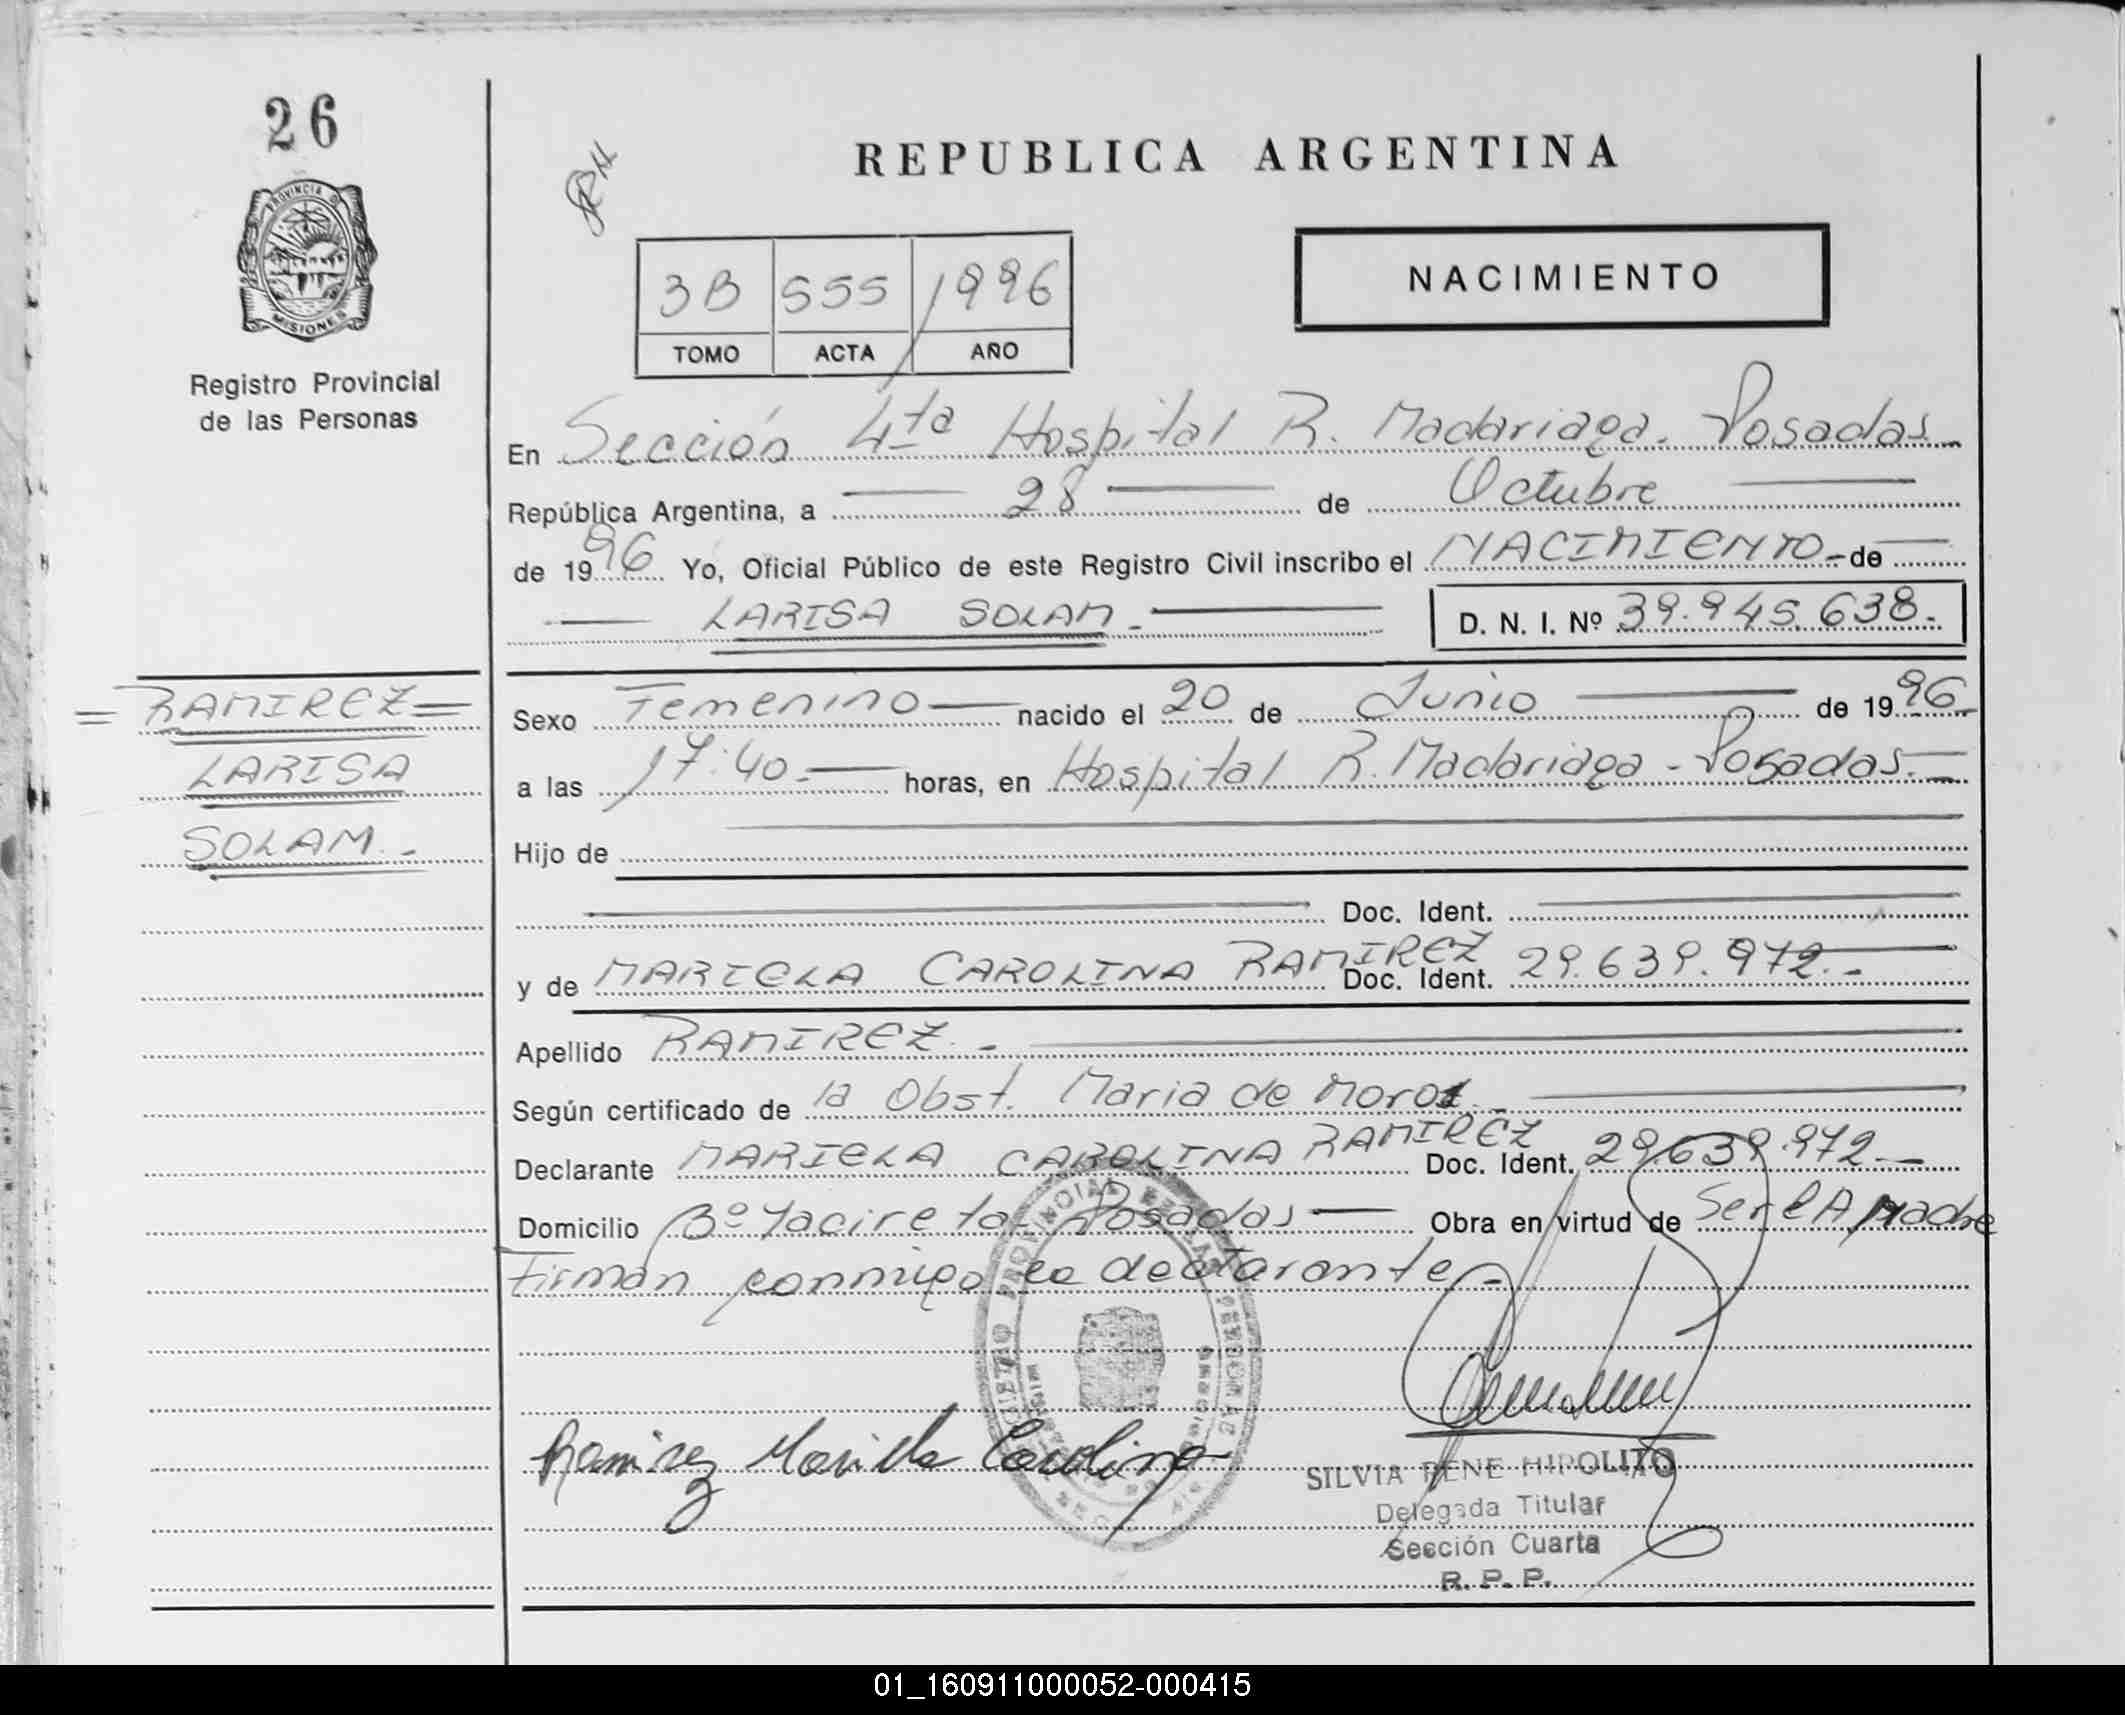 26
PROVINCIA D
MISIONES
Registro Provincial
de las Personas
REPUBLICA ARGENTINA
3B 555 1996
TOMO ACTA AÑO
NACIMIENTO
En Sección 4ta Hospital R. Madariaga. Posadas
República Argentina, a 28 de Octubre
de 1996 Yo, Oficial Público de este Registro Civil inscribo el NACIMIENTO de
LARISA SOLAM.
D. N. I. Nº 39.945.638.
= RAMIREZ =
LARISA
SOLAM.-
Sexo Femenino nacido el 20 de Junio de 1996
a las 17:40.- horas, en Hospital R. Madariaga - Posadas.
Hijo de
Doc. Ident.
y de MARIELA CAROLINA RAMIREZ Doc. Ident. 29.639.972.-
Apellido RAMIREZ.-
Según certificado de la Obst. Maria de
Declarante MARIELA CAROLINA RAMIREZ Doc. Ident. 29.639.972.-
Domicilio Bº Yacireta - Posadas Obra en virtud de Ser lA Madre
Firman conmigo la declarante.-
REGISTRO PROVINCIAL DE LAS PERSONAS
Ramirez Mariela Carolina
SILVIA RENE HIPOLITO
Delegada Titular
Sección Cuarta
R. P. P.
01_160911000052-000415